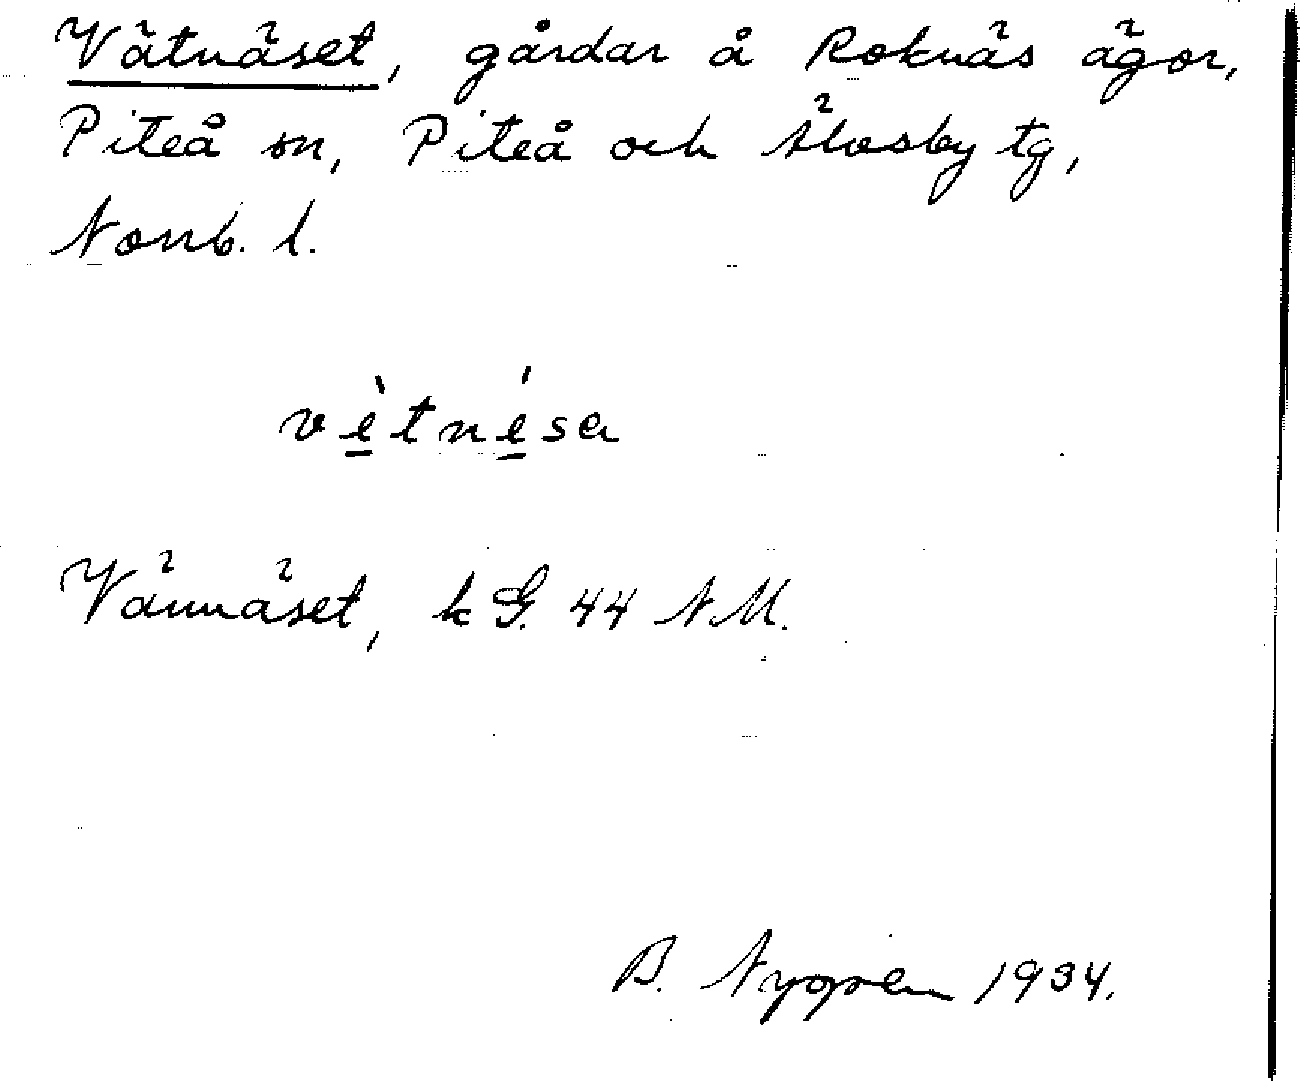 Vätnäset, gårdar å Roknäs ägor,
Piteå sn, Piteå och Älvsby tg,
Norrb. l.
vètnésa
Vännäset, k G. 44 NM.
B. Nygren 1934.